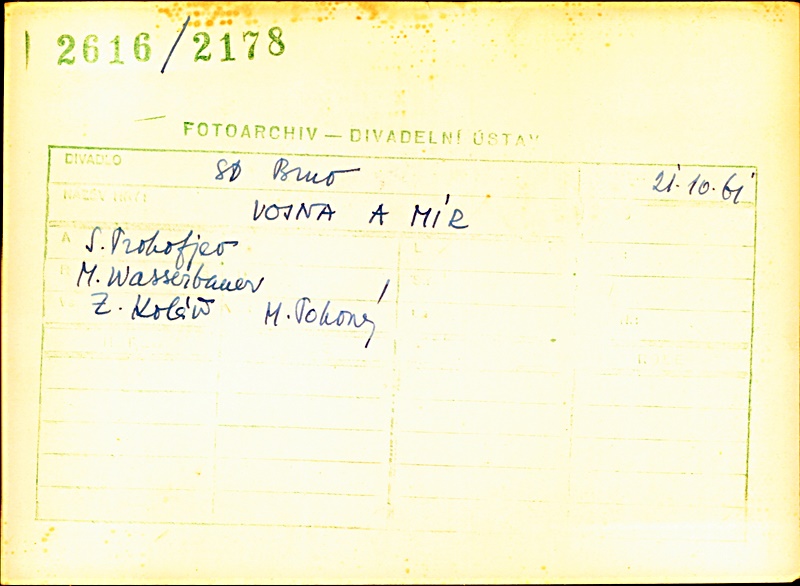 2616/2178
FOTOARCHIV — DIVADELNÍ ÚSTAV
DIVADLO SD Brno 21.10.61
NÁZEV HRY: VOJNA A MÍR
S. Prokofjev
M. Wasserbauer
Z. Kolář M. Pokorný